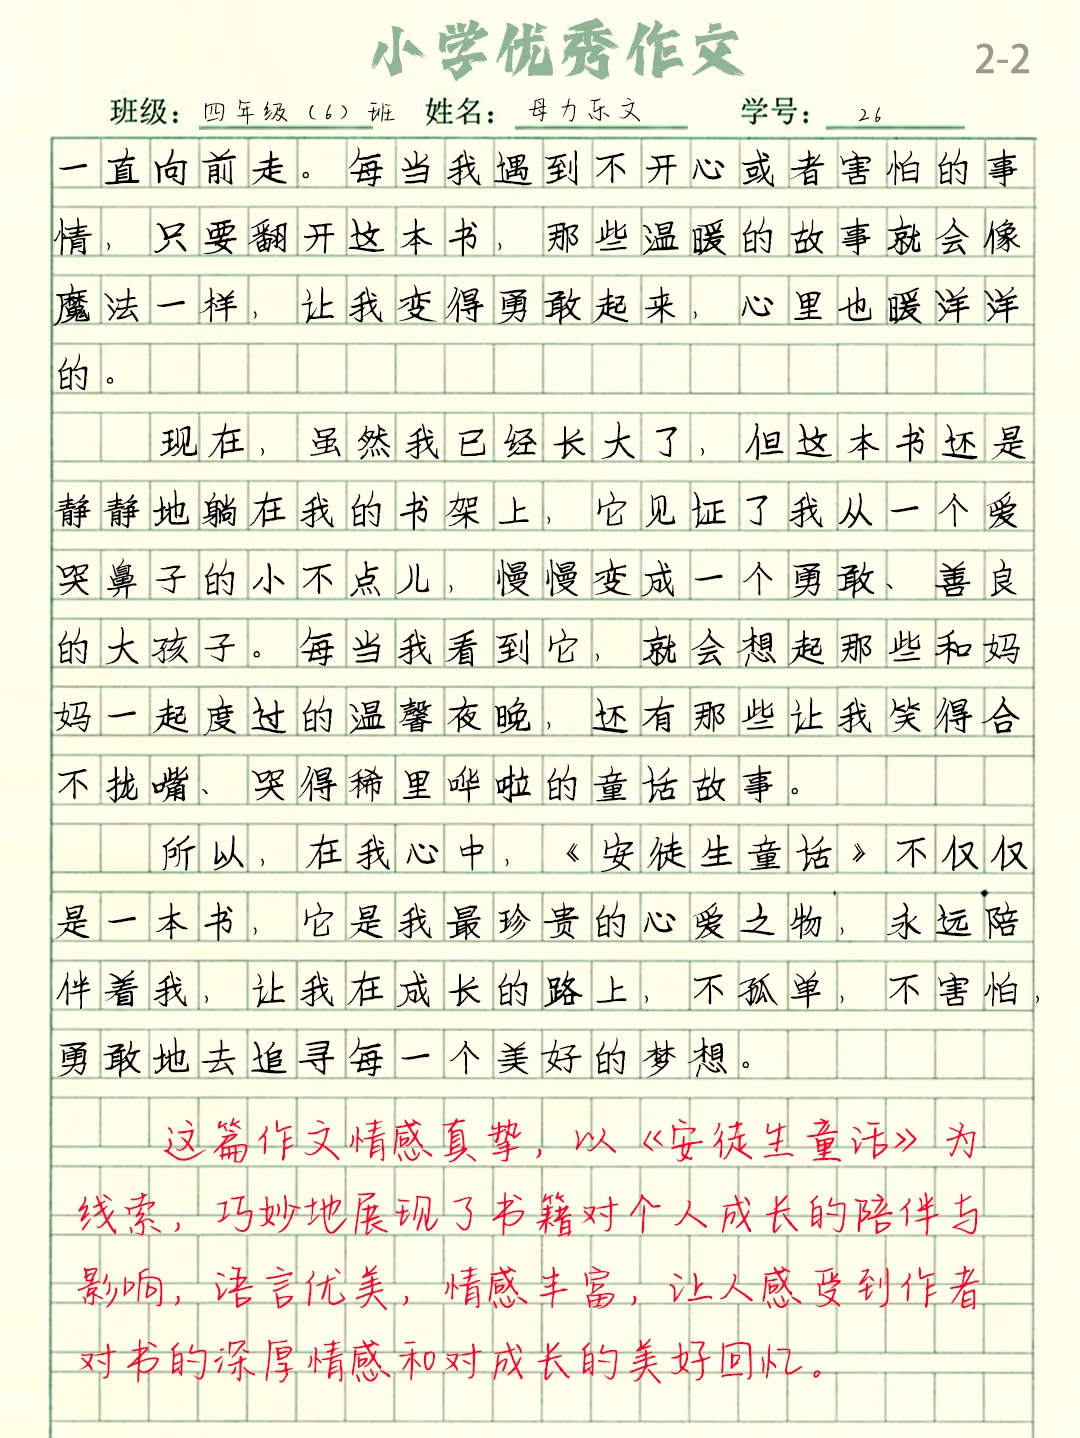 小学优秀作文
2-2
班级：四年级（6）班 姓名：母力乐文 学号：26
一直向前走。每当我遇到不开心或者害怕的事
情，只要翻开这本书，那些温暖的故事就会像
魔法一样，让我变得勇敢起来，心里也暖洋洋
的。
现在，虽然我已经长大了，但这本书还是
静静地躺在我的书架上，它见证了我从一个爱
哭鼻子的小不点儿，慢慢变成一个勇敢、善良
的大孩子。每当我看到它，就会想起那些和妈
妈一起度过的温馨夜晚，还有那些让我笑得合
不拢嘴、哭得稀里哗啦的童话故事。
所以，在我心中，《安徒生童话》不仅仅
是一本书，它是我最珍贵的心爱之物，永远陪
伴着我，让我在成长的路上，不孤单，不害怕，
勇敢地去追寻每一个美好的梦想。
这篇作文情感真挚，以《安徒生童话》为
线索，巧妙地展现了书籍对个人成长的陪伴与
影响，语言优美，情感丰富，让人感受到作者
对书的深厚情感和对成长的美好回忆。